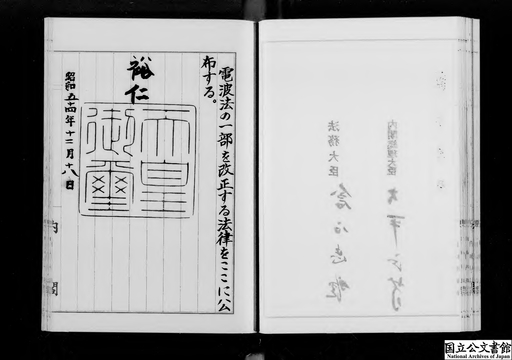 電波法の一部を改正する法律をここに公
布する。
裕仁
天皇
御璽
昭和五十四年十二月十八日
内閣
内閣総理大臣
法務大臣
国立公文書館
National Archives of Japan